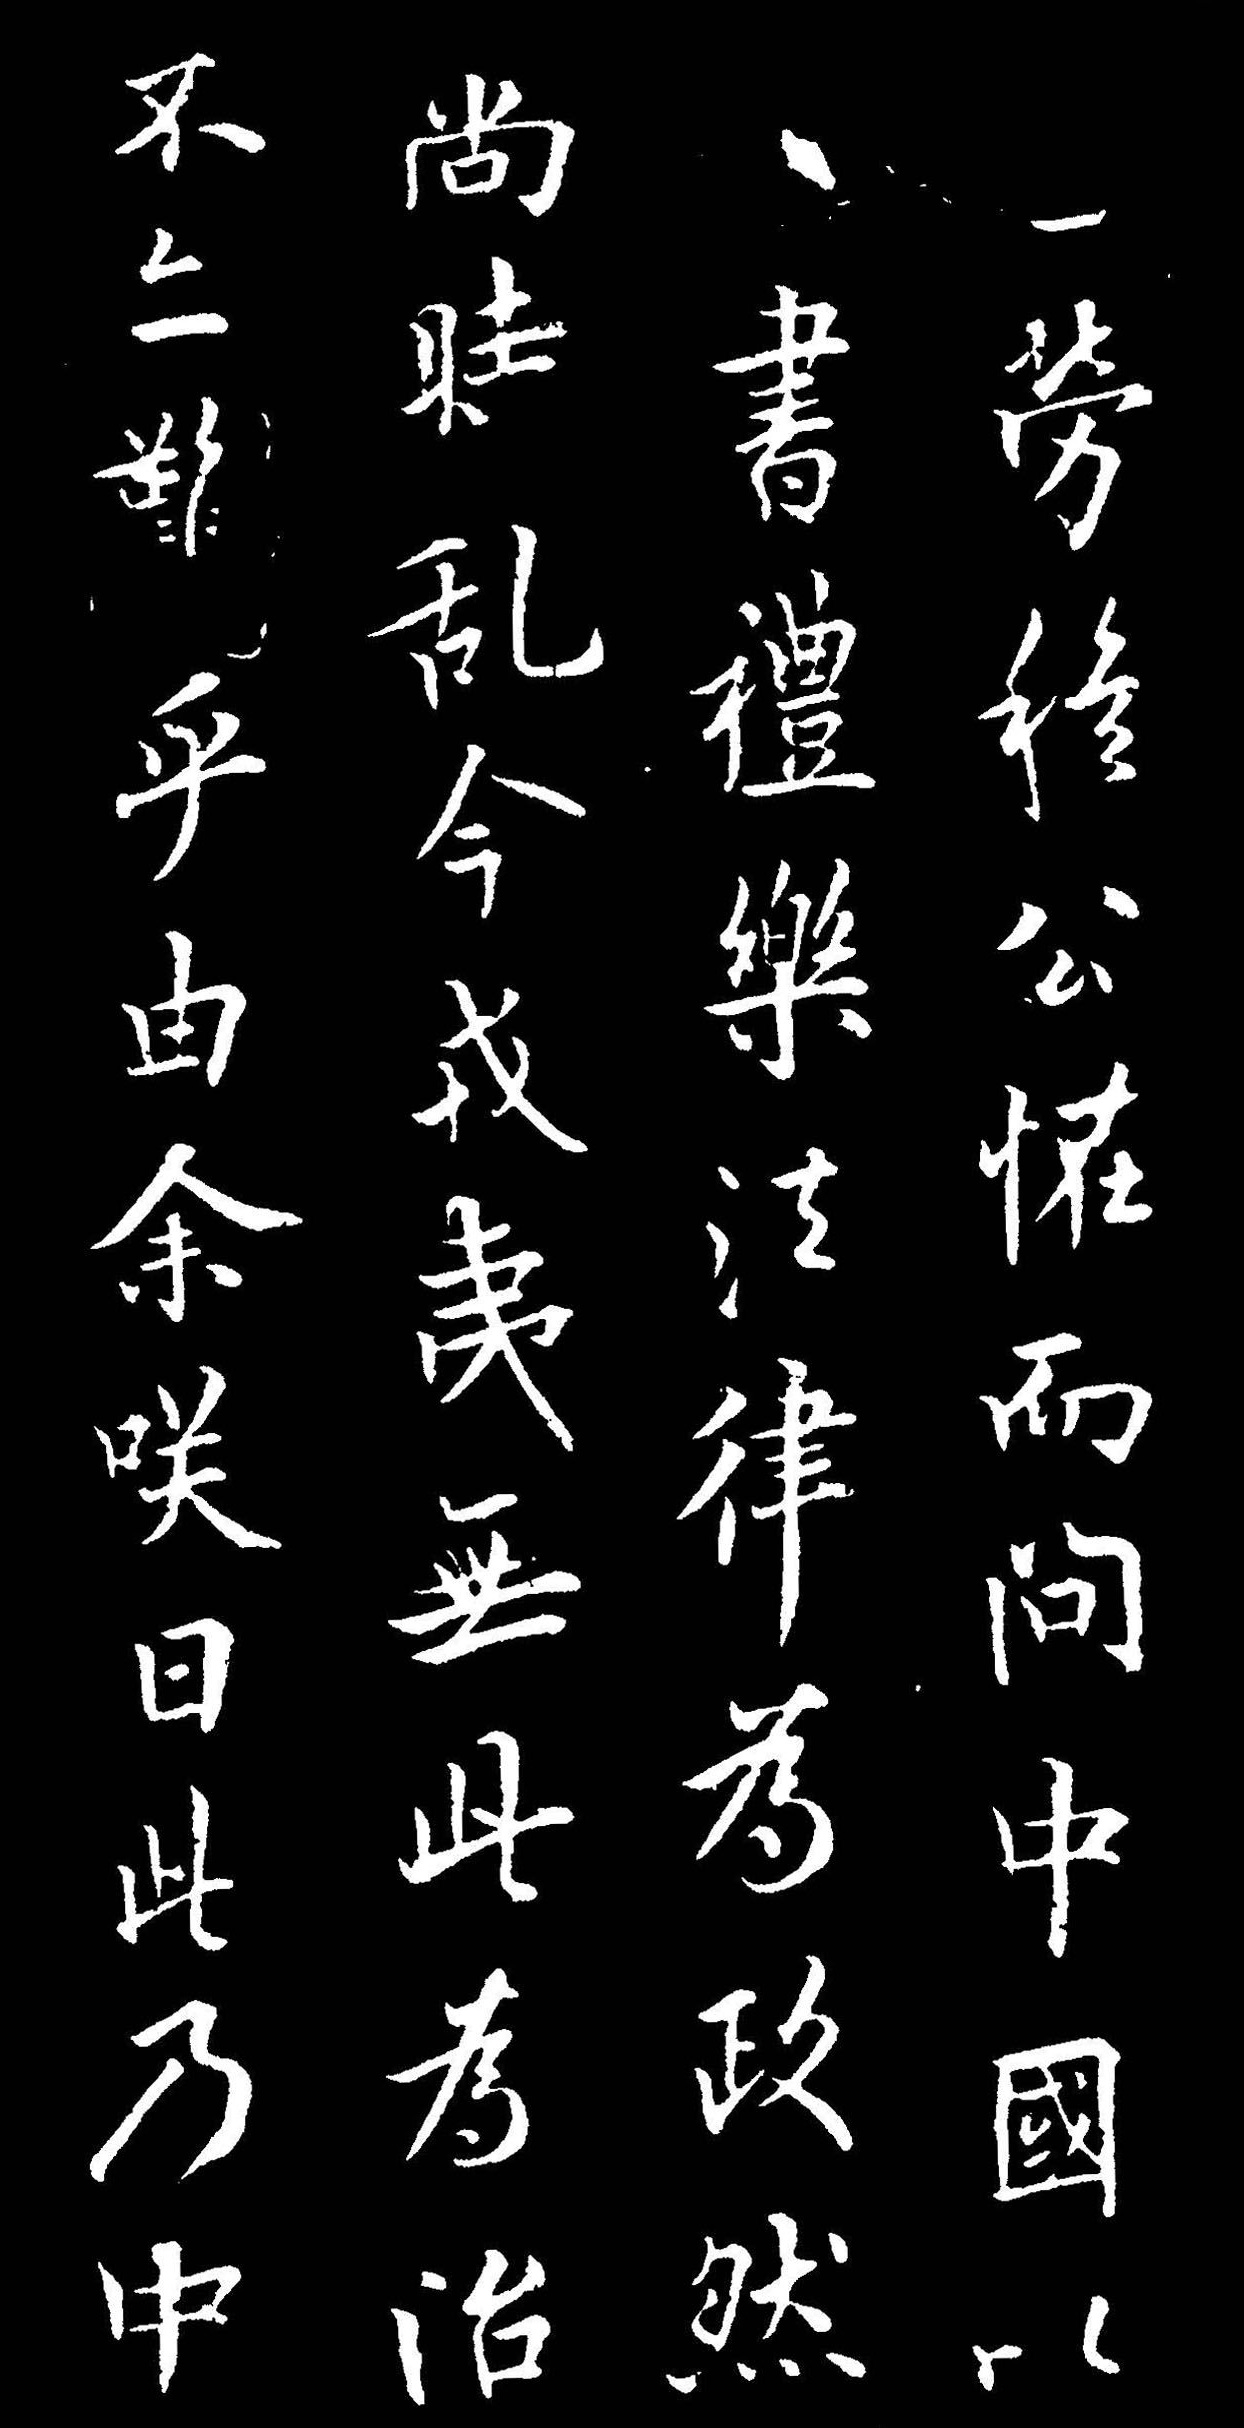 劳穆公恠而问中國以
書禮樂法律為政然
尚时乱今戎夷無此為治
不亦難乎由余咲曰此乃中